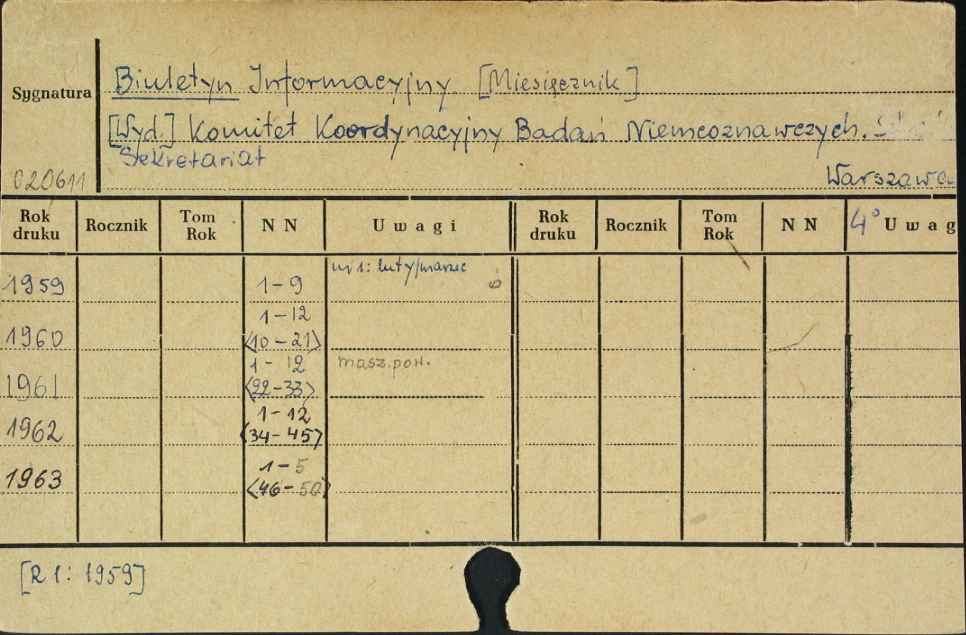 Sygnatura
Biuletyn Informacyjny [Miesięcznik]
[Wyd.] Komitet Koordynacyjny Badań Niemcoznawczych.
Sekretariat
020611 Warszawa
Rok druku Rocznik Tom Rok N N Uwagi Rok druku Rocznik Tom Rok N N 4° Uwag
nr 1: luty/marzec
1959 1-9
1-12
1960 <10-21>
1-12 masz. pow.
1961 <22-33>
1-12
1962 <34-45>
1-5
1963 <46-50>
[R 1: 1959]